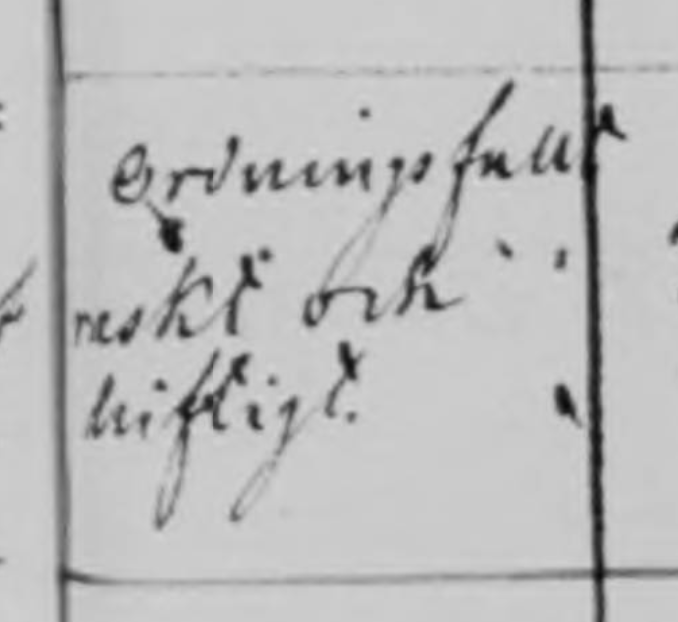 Ordningsfullt
raskt och
häftigt.